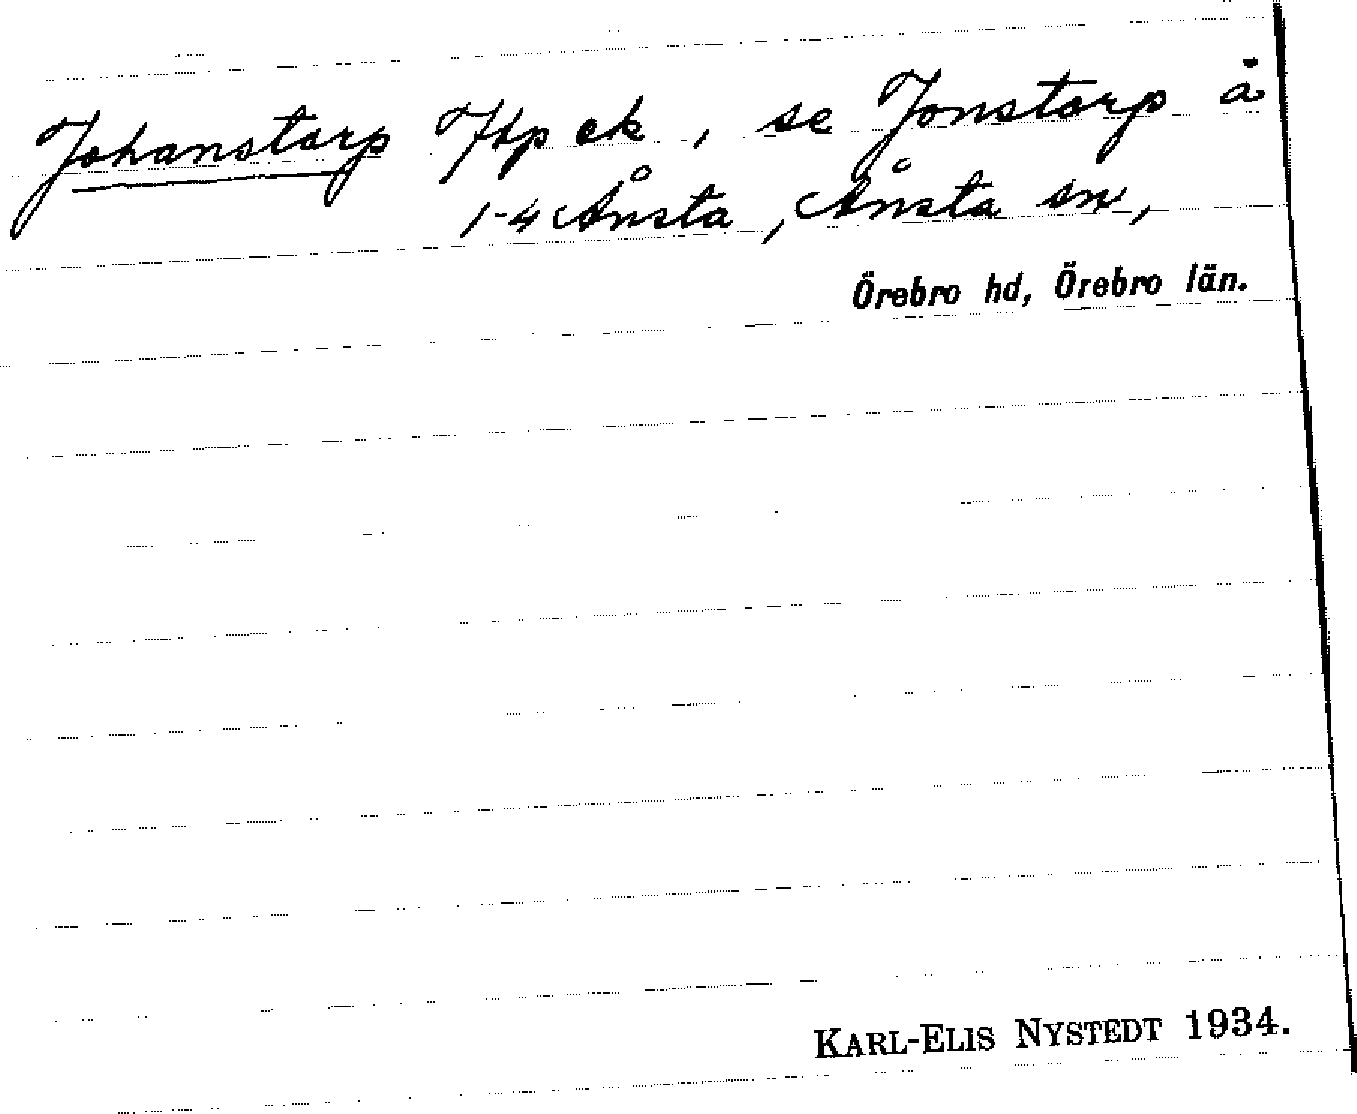 Johanstorp Jkp ek, se Jonstorp å
1-4 Ånsta, Ånsta sn,
Örebro hd, Örebro län.
KARL-ELIS NYSTEDT 1934.